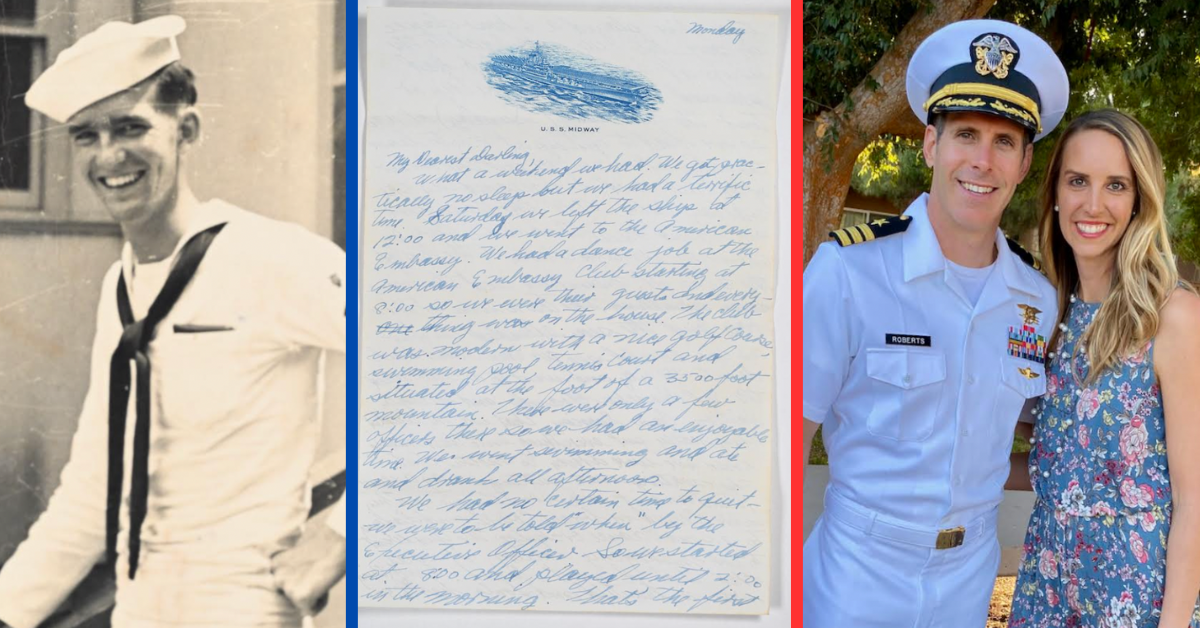 Monday
U.S.S. MIDWAY
My Dearest Darling,
What a wk'end we had. We got prac-
tically no sleep but we had a terrific
time. Saturday we left the ship at
12:00 and we went to the American
Embassy. We had a dance job at the
American Embassy Club starting at
8:00 so we were their guests and every-
thing was on the house. The club
was modern with a nice golf course,
swimming pool, tennis court and
situated at the foot of a 3500 foot
mountain. There were only a few
officers there so we had an enjoyable
time. We went swimming and ate
and drank all afternoon.
We had no certain time to quit-
we were to be told "when" by the
Executive Officer. So we started
at 8:00 and played until 2:00
in the morning. That's the first
ROBERTS